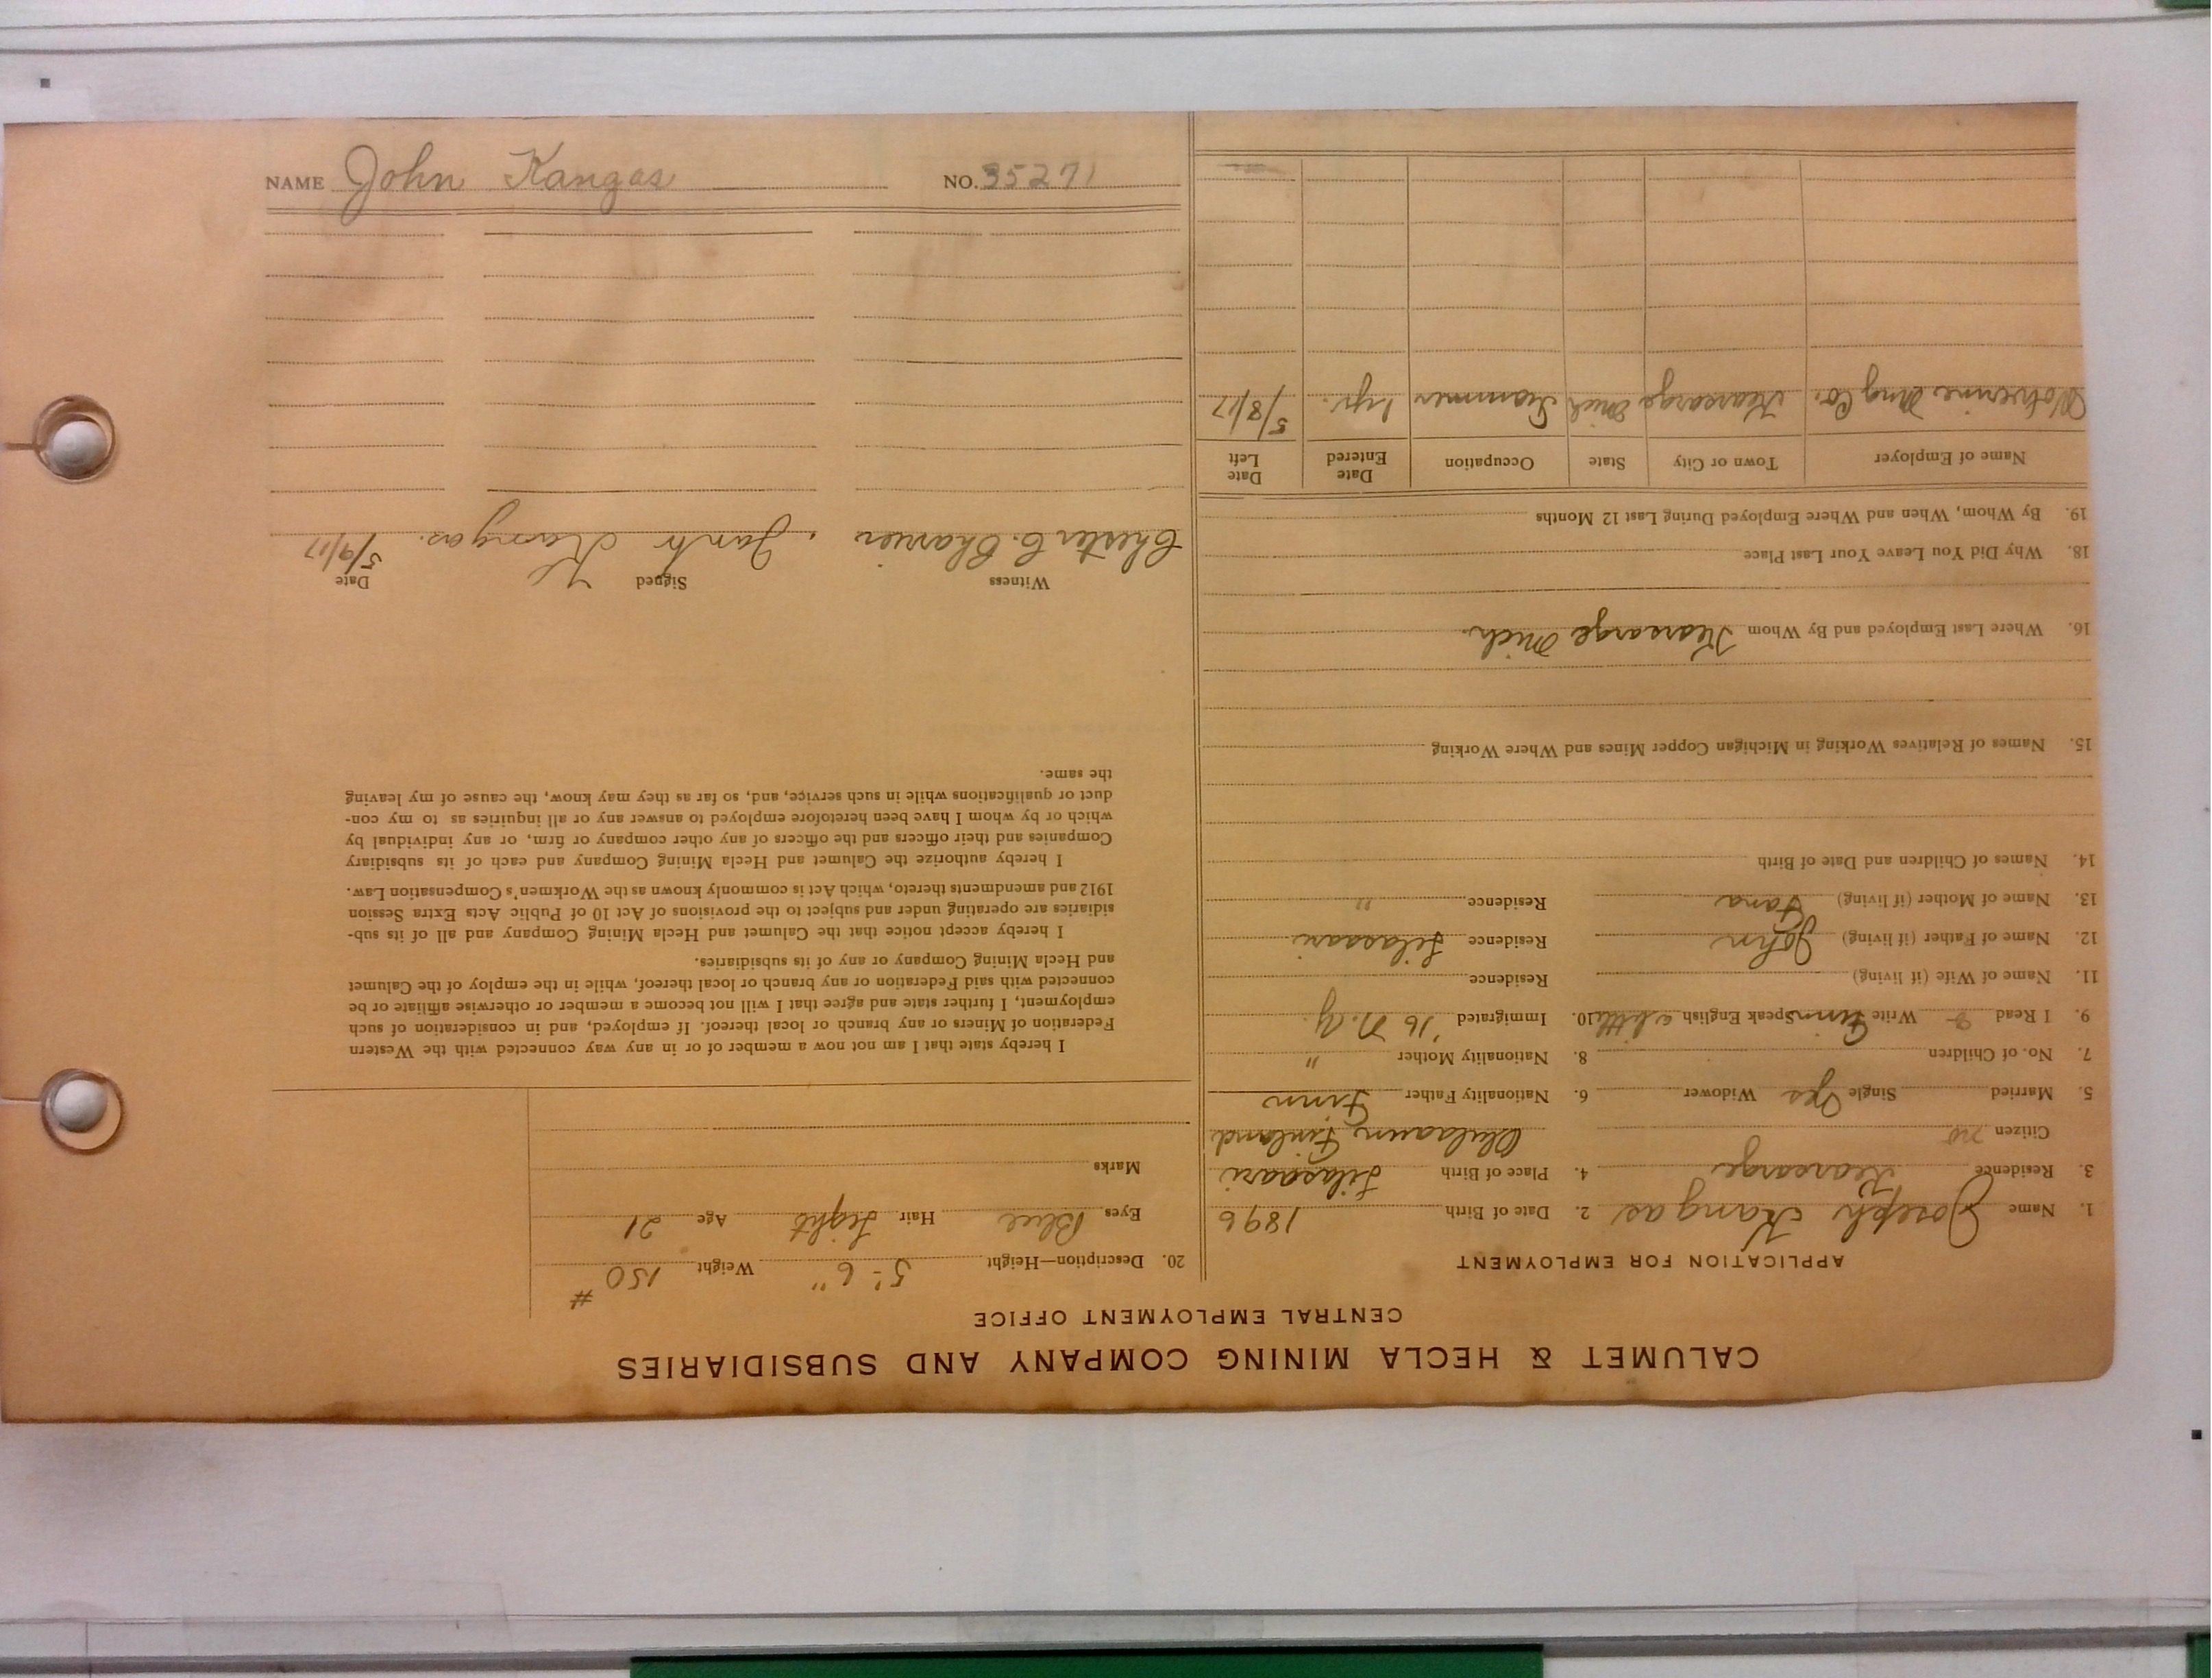 NAME John Kangas NO. 35271
CALUMET & HECLA MINING COMPANY AND SUBSIDIARIES
CENTRAL EMPLOYMENT OFFICE
APPLICATION FOR EMPLOYMENT
1. Name Joseph Kangas 2. Date of Birth 1896
3. Residence Kearsarge 4. Place of Birth
Citizen no Finland
5. Married Single Yes Widower 6. Nationality Father Finn
7. No. of Children 8. Nationality Mother "
9. I Read & Write Finn Speak English a little 10. Immigrated '16 N.Y.
11. Name of Wife (if living) Residence
12. Name of Father (if living) John Residence
13. Name of Mother (if living) Residence "
14. Names of Children and Date of Birth
15. Names of Relatives Working in Michigan Copper Mines and Where Working
16. Where Last Employed and By Whom Kearsarge Mich.
18. Why Did You Leave Your Last Place
19. By Whom, When and Where Employed During Last 12 Months
Name of Employer Town or City State Occupation Date Entered Date Left
Wolverine Mng Co. Kearsarge Mich Trammer 1 yr. 5/8/17
20. Description—Height 5'-6" Weight 150 #
Eyes Blue Hair Light Age 21
Marks
I hereby state that I am not now a member of or in any way connected with the Western
Federation of Miners or any branch or local thereof. If employed, and in consideration of such
employment, I further state and agree that I will not become a member or otherwise affiliate or be
connected with said Federation or any branch or local thereof, while in the employ of the Calumet
and Hecla Mining Company or any of its subsidiaries.
I hereby accept notice that the Calumet and Hecla Mining Company and all of its sub-
sidiaries are operating under and subject to the provisions of Act 10 of Public Acts Extra Session
1912 and amendments thereto, which Act is commonly known as the Workmen's Compensation Law.
I hereby authorize the Calumet and Hecla Mining Company and each of its subsidiary
Companies and their officers and the officers of any other company or firm, or any individual by
which or by whom I have been heretofore employed to answer any or all inquiries as to my con-
duct or qualifications while in such service, and, so far as they may know, the cause of my leaving
the same.
Witness Signed Date
Chester C. Kangas. 5/9/17